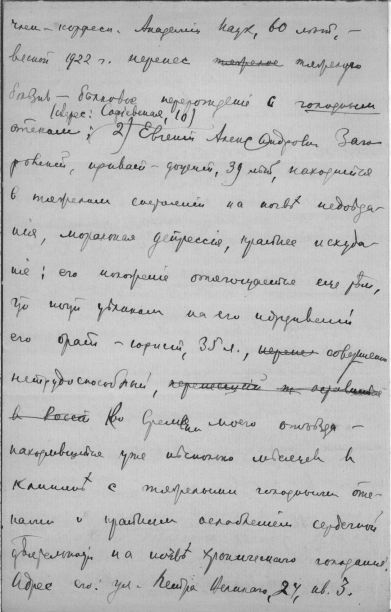 член-корресп. Академiи Наук, 60 лѣт, –
весной 1922 г. перенес тяжелое тяжелую
болѣзнь – бѣлковое перерожденiе с голодными
(адрес: Софiевская, 10)
отеками; 2) Евгенiй Александрович Заго
ровскiй, приват-доцент, 39 лѣт, находится
в тяжелом состоянiи на почвѣ недоѣда-
нiя, моральная депрессiя, крайнее исхуда-
нiе; его положенiе отягощается еще тѣм,
что почти цѣликом на его иждивенiи
его брат – юрист, 35 л., перенес совершенно
нетрудоспособный, перенесшiй
в Ко времени моего отъѣзда –
находившiйся уже нѣсколько мѣсяцев в
клиникѣ с тяжелыми голодными оте-
ками и крайним ослабленiем сердечной
дѣятельности на почвѣ хроническаго голоданiя.
Адрес его: ул. Петра Великаго, 27, кв. 3.